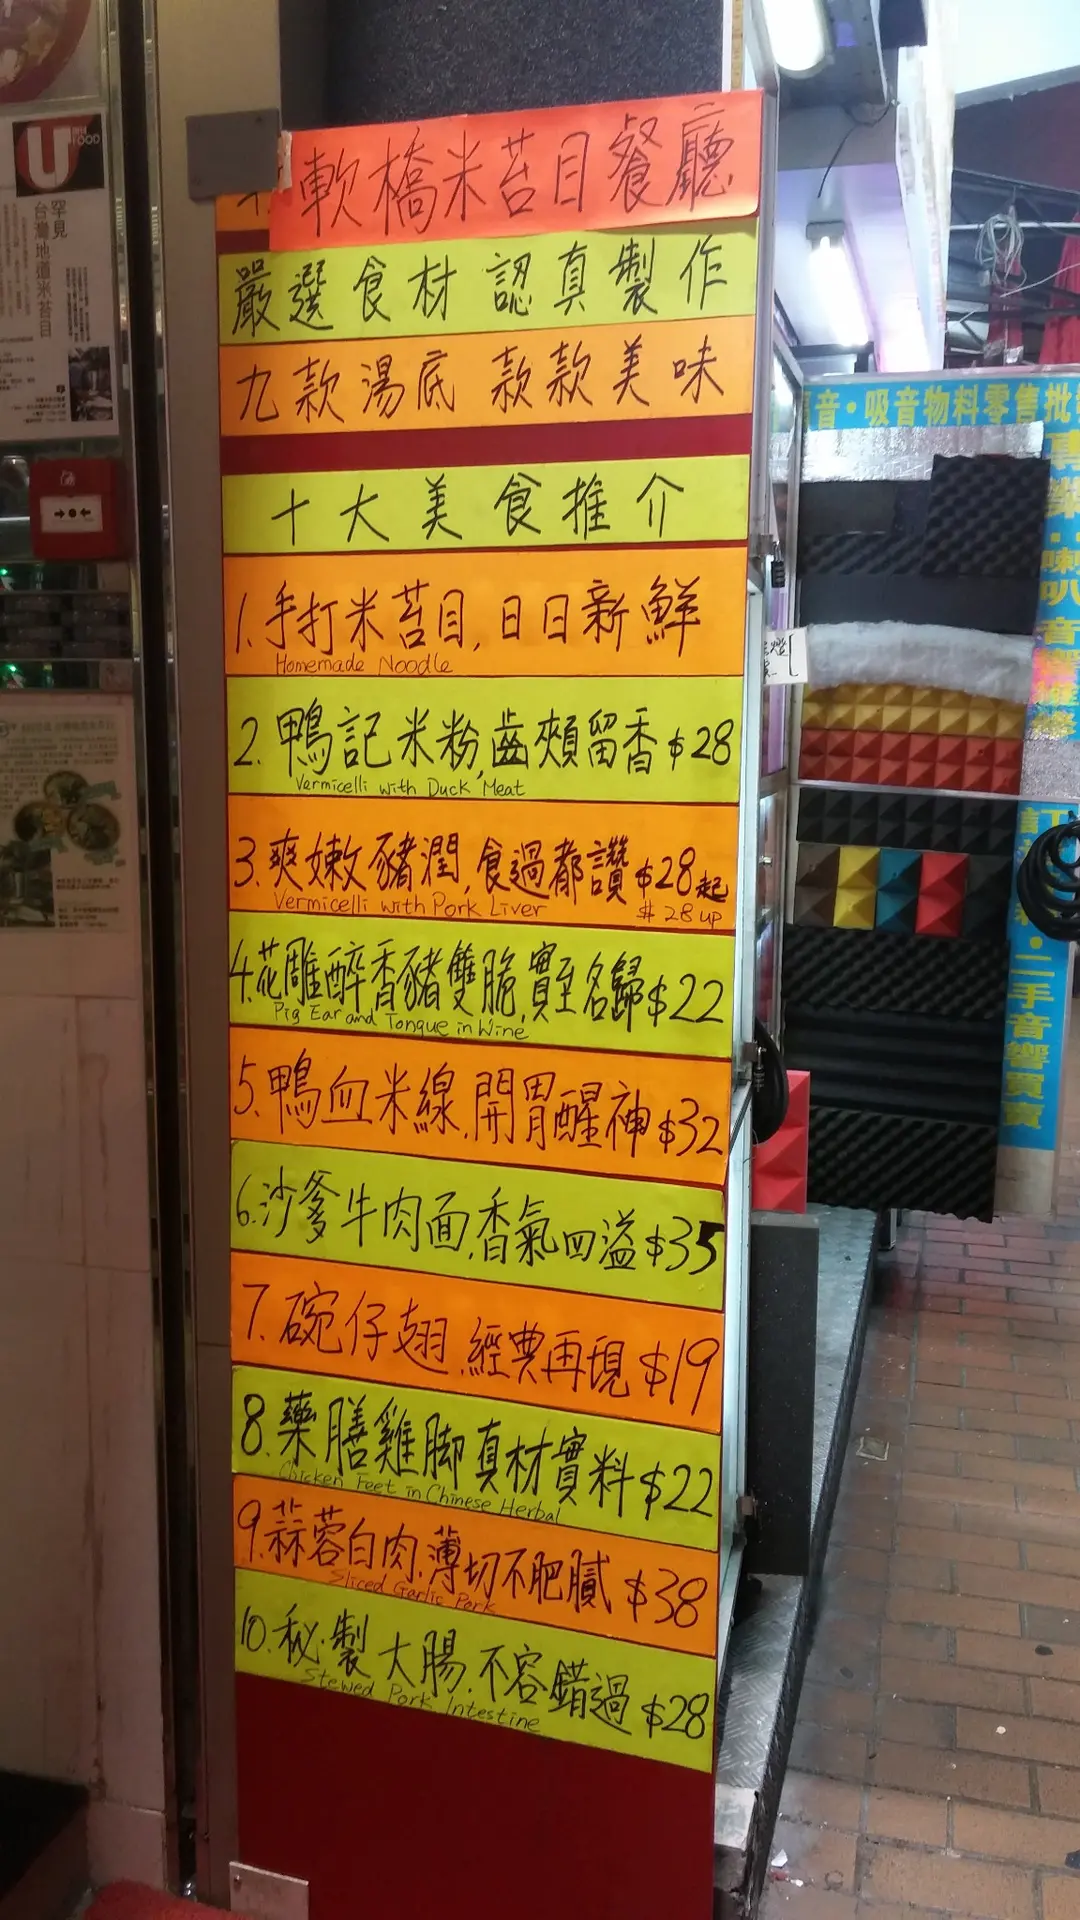 軟橋米苔目餐廳
嚴選食材 認真製作
九款湯底 款款美味
十大美食推介
1.手打米苔目,日日新鮮
Homemade Noodle
2.鴨記米粉,齒頰留香$28
Vermicelli with Duck Meat
3.爽嫩豬潤,食過都讚$28起
Vermicelli with Pork Liver $28 up
4.花雕醉香豬雙脆,實至名歸$22
Pig Ear and Tongue in Wine
5.鴨血米線,開胃醒神$32
6.沙爹牛肉面,香氣四溢$35
7.碗仔翅,經典再現$19
8.藥膳雞脚真材實料$22
Chicken Feet in Chinese Herbal
9.蒜蓉白肉,薄切不肥膩$38
Sliced Garlic Pork
10.秘製大腸,不容錯過$28
Stewed Pork Intestine
U
FOOD
罕見
台灣地道米苔目
音・吸音物料零售批
二手音響買賣